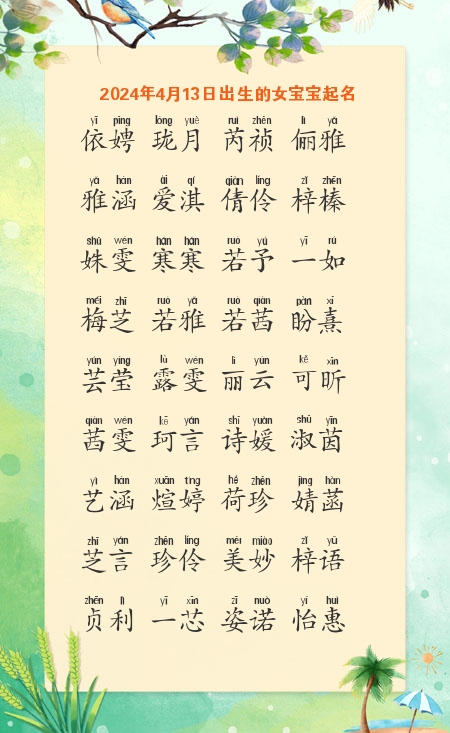 2024年4月13日出生的女宝宝起名
yī pīng lóng yuè ruì zhēn lì yǎ
依娉 珑月 芮祯 俪雅
yǎ hán ài qí qiàn líng zǐ zhēn
雅涵 爱淇 倩伶 梓榛
shū wén hán hán ruò yú yī rú
姝雯 寒寒 若予 一如
méi zhī ruò yǎ ruò qiàn pàn xī
梅芝 若雅 若茜 盼熹
yún yíng lù wén lì yún kě xīn
芸莹 露雯 丽云 可昕
qiàn wén kē yán shī yuàn shū yīn
茜雯 珂言 诗媛 淑茵
yì hán xuān tíng hé zhēn jìng hàn
艺涵 煊婷 荷珍 婧菡
zhī yán zhēn líng měi miào zǐ yǔ
芝言 珍伶 美妙 梓语
zhēn lì yī xīn zī nuò yí huì
贞利 一芯 姿诺 怡惠